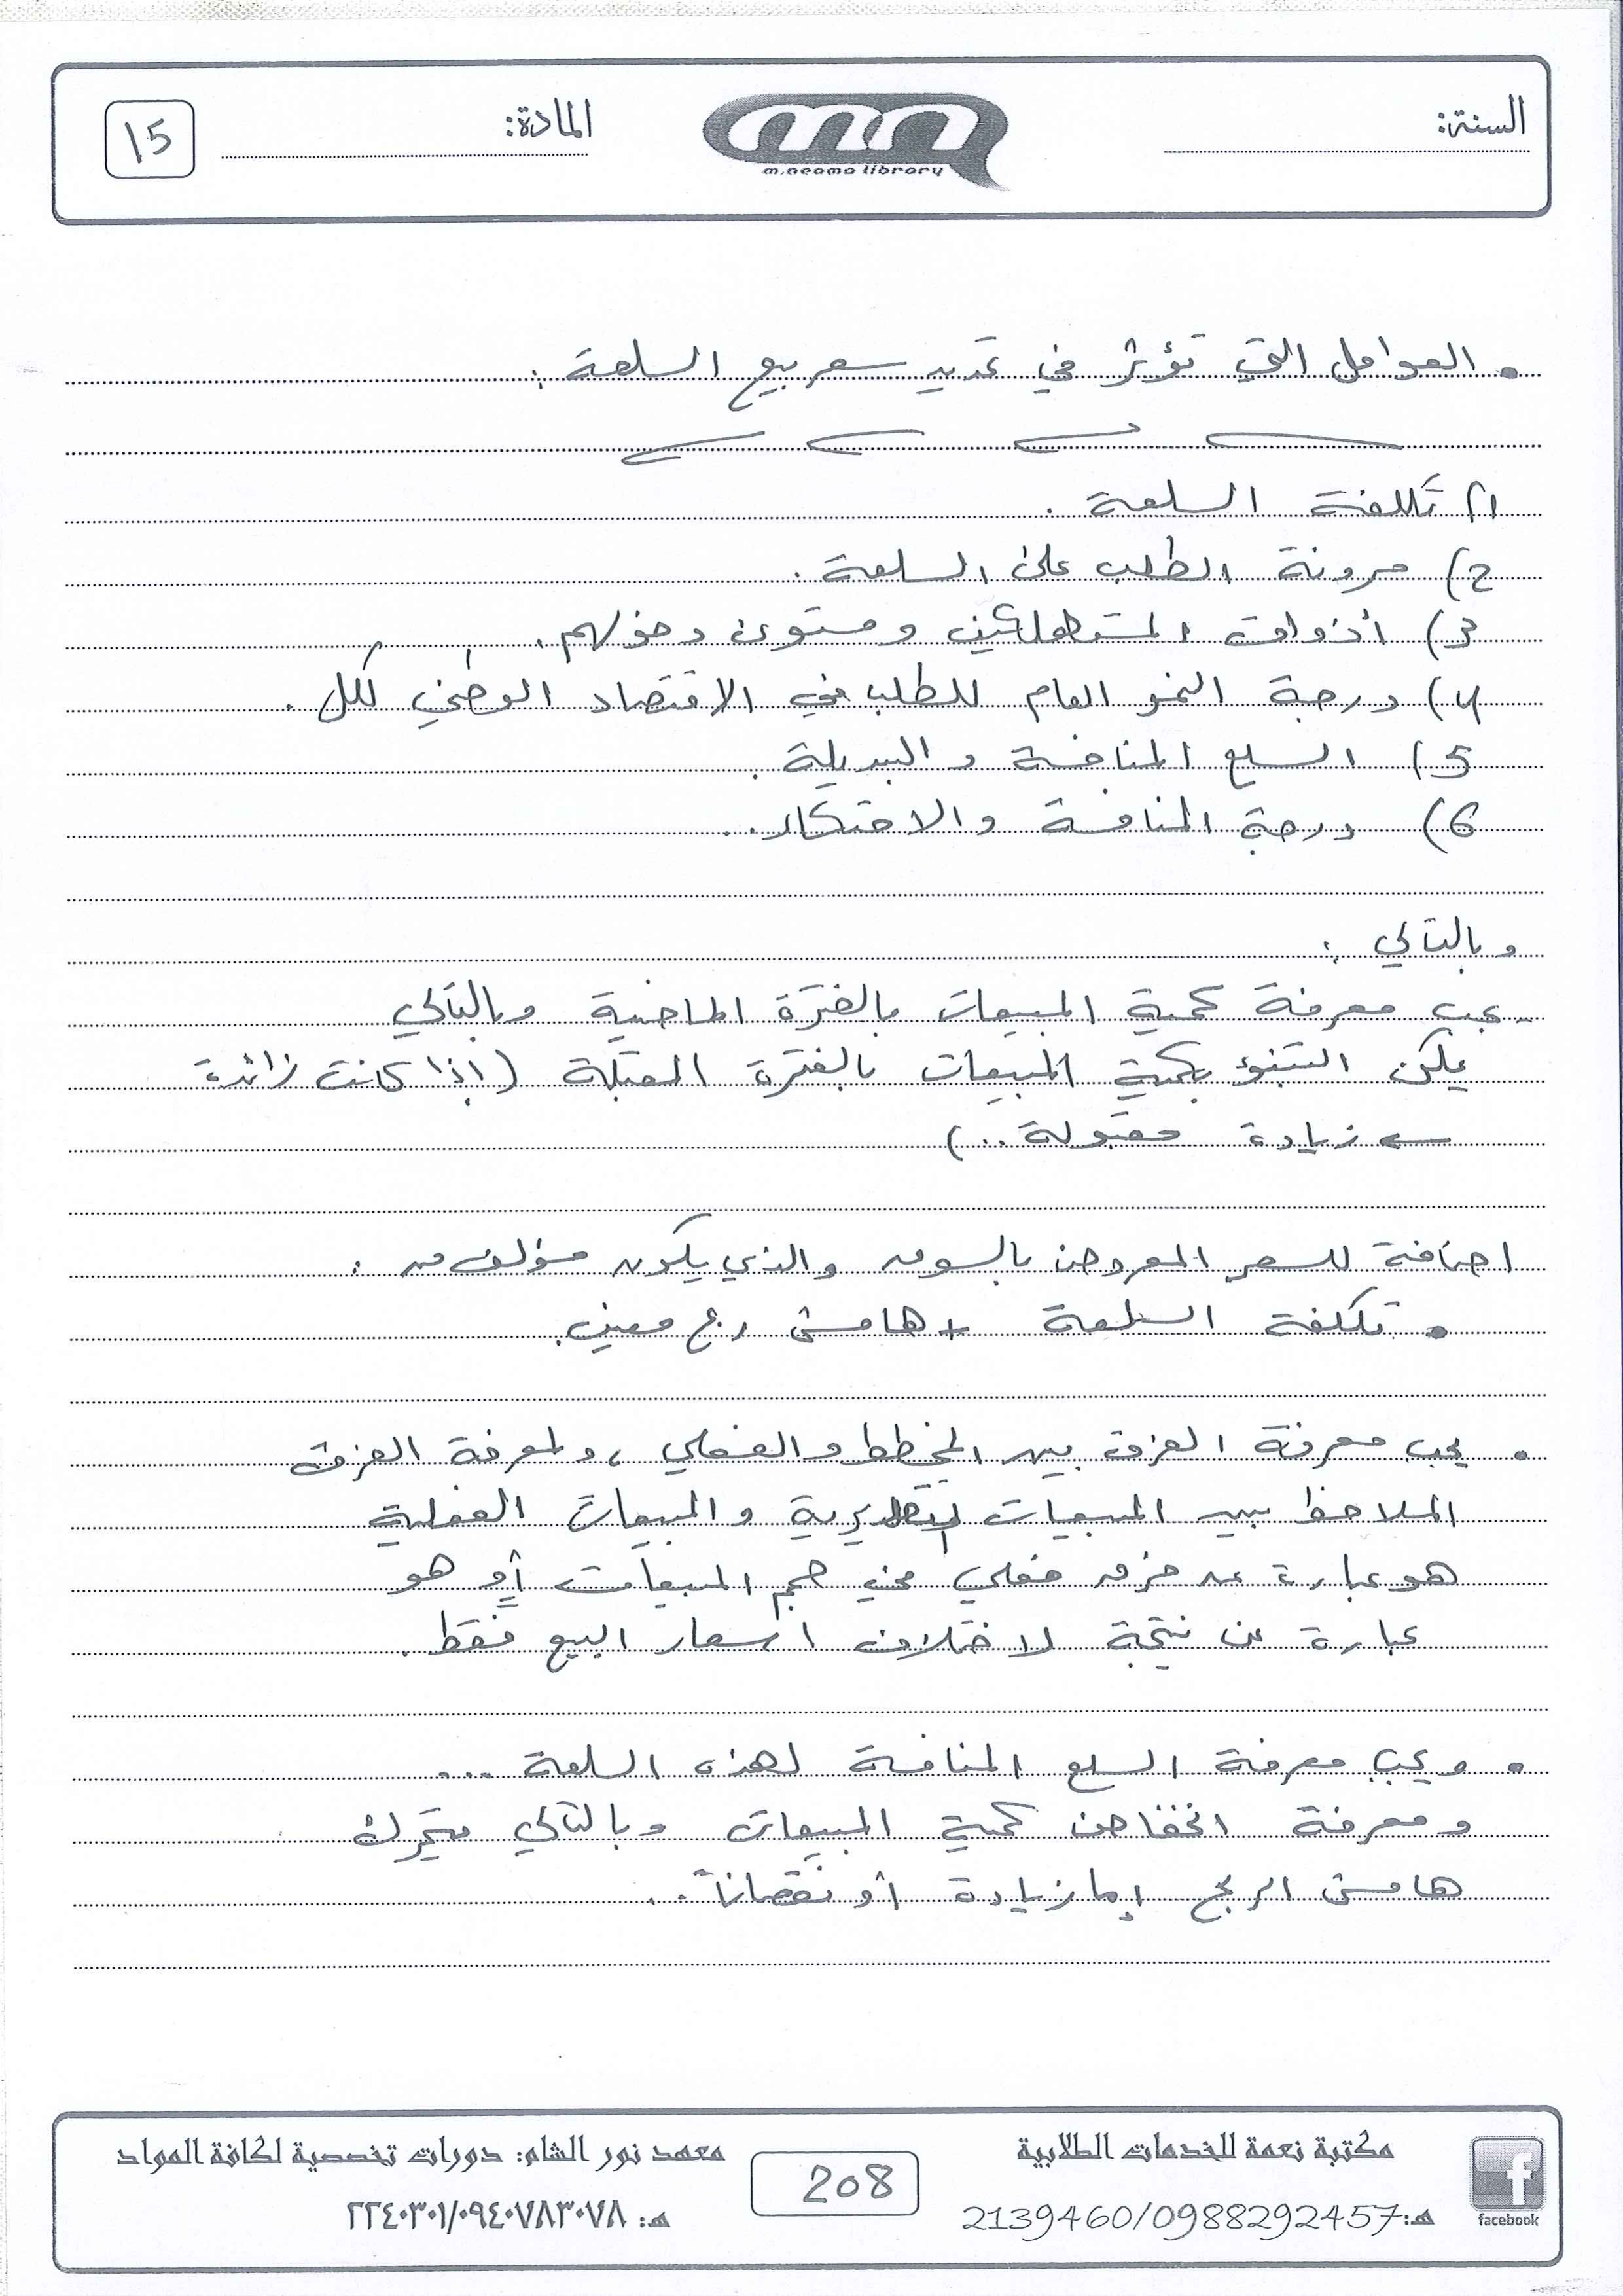 السنة:
m.neama library
المادة:
15
• العوامل التي تؤثر في تحديد سعر بيع السلعة :
1) تكلفة السلعة .
2) مرونة الطلب على السلعة .
3) أذواق المستهلكين ومستوى دخولهم .
4) درجة النمو العام للطلب في الاقتصاد الوطني ككل .
5) السلع المنافسة والبديلة .
6) درجة المنافسة والاحتكار ..
وبالتالي :
- يجب معرفة كمية المبيعات بالفترة الماضية وبالتالي
يمكن التنبؤ بكمية المبيعات بالفترة المقبلة (إذا كانت زائدة
← زيادة مقبولة ..)
اضافة للسعر المعروض بالسوق والذي يكون مؤلف من :
• تكلفة السلعة + هامش ربح معين .
• يجب معرفة الفرق بين المخطط والفعلي ، ولمعرفة الفرق
الملاحظ بين المبيعات التقديرية والمبيعات الفعلية
هو عبارة عن فرق فعلي في حجم المبيعات أو هو
عبارة عن نتيجة لاختلاف اسعار البيع فقط .
• ويجب معرفة السلع المنافسة لهذه السلعة ...
ومعرفة انخفاض كمية المبيعات وبالتالي يتحرك
هامش الربح إما زيادة أو نقصاناً ..
مكتبة نعمة للخدمات الطلابية
هـ: 2139460/0988292457
facebook
208
معهد نور الشام: دورات تخصصية لكافة المواد
هـ: ٢٢٤٠٣٠١/٠٩٤٠٧٨٣٠٧٨